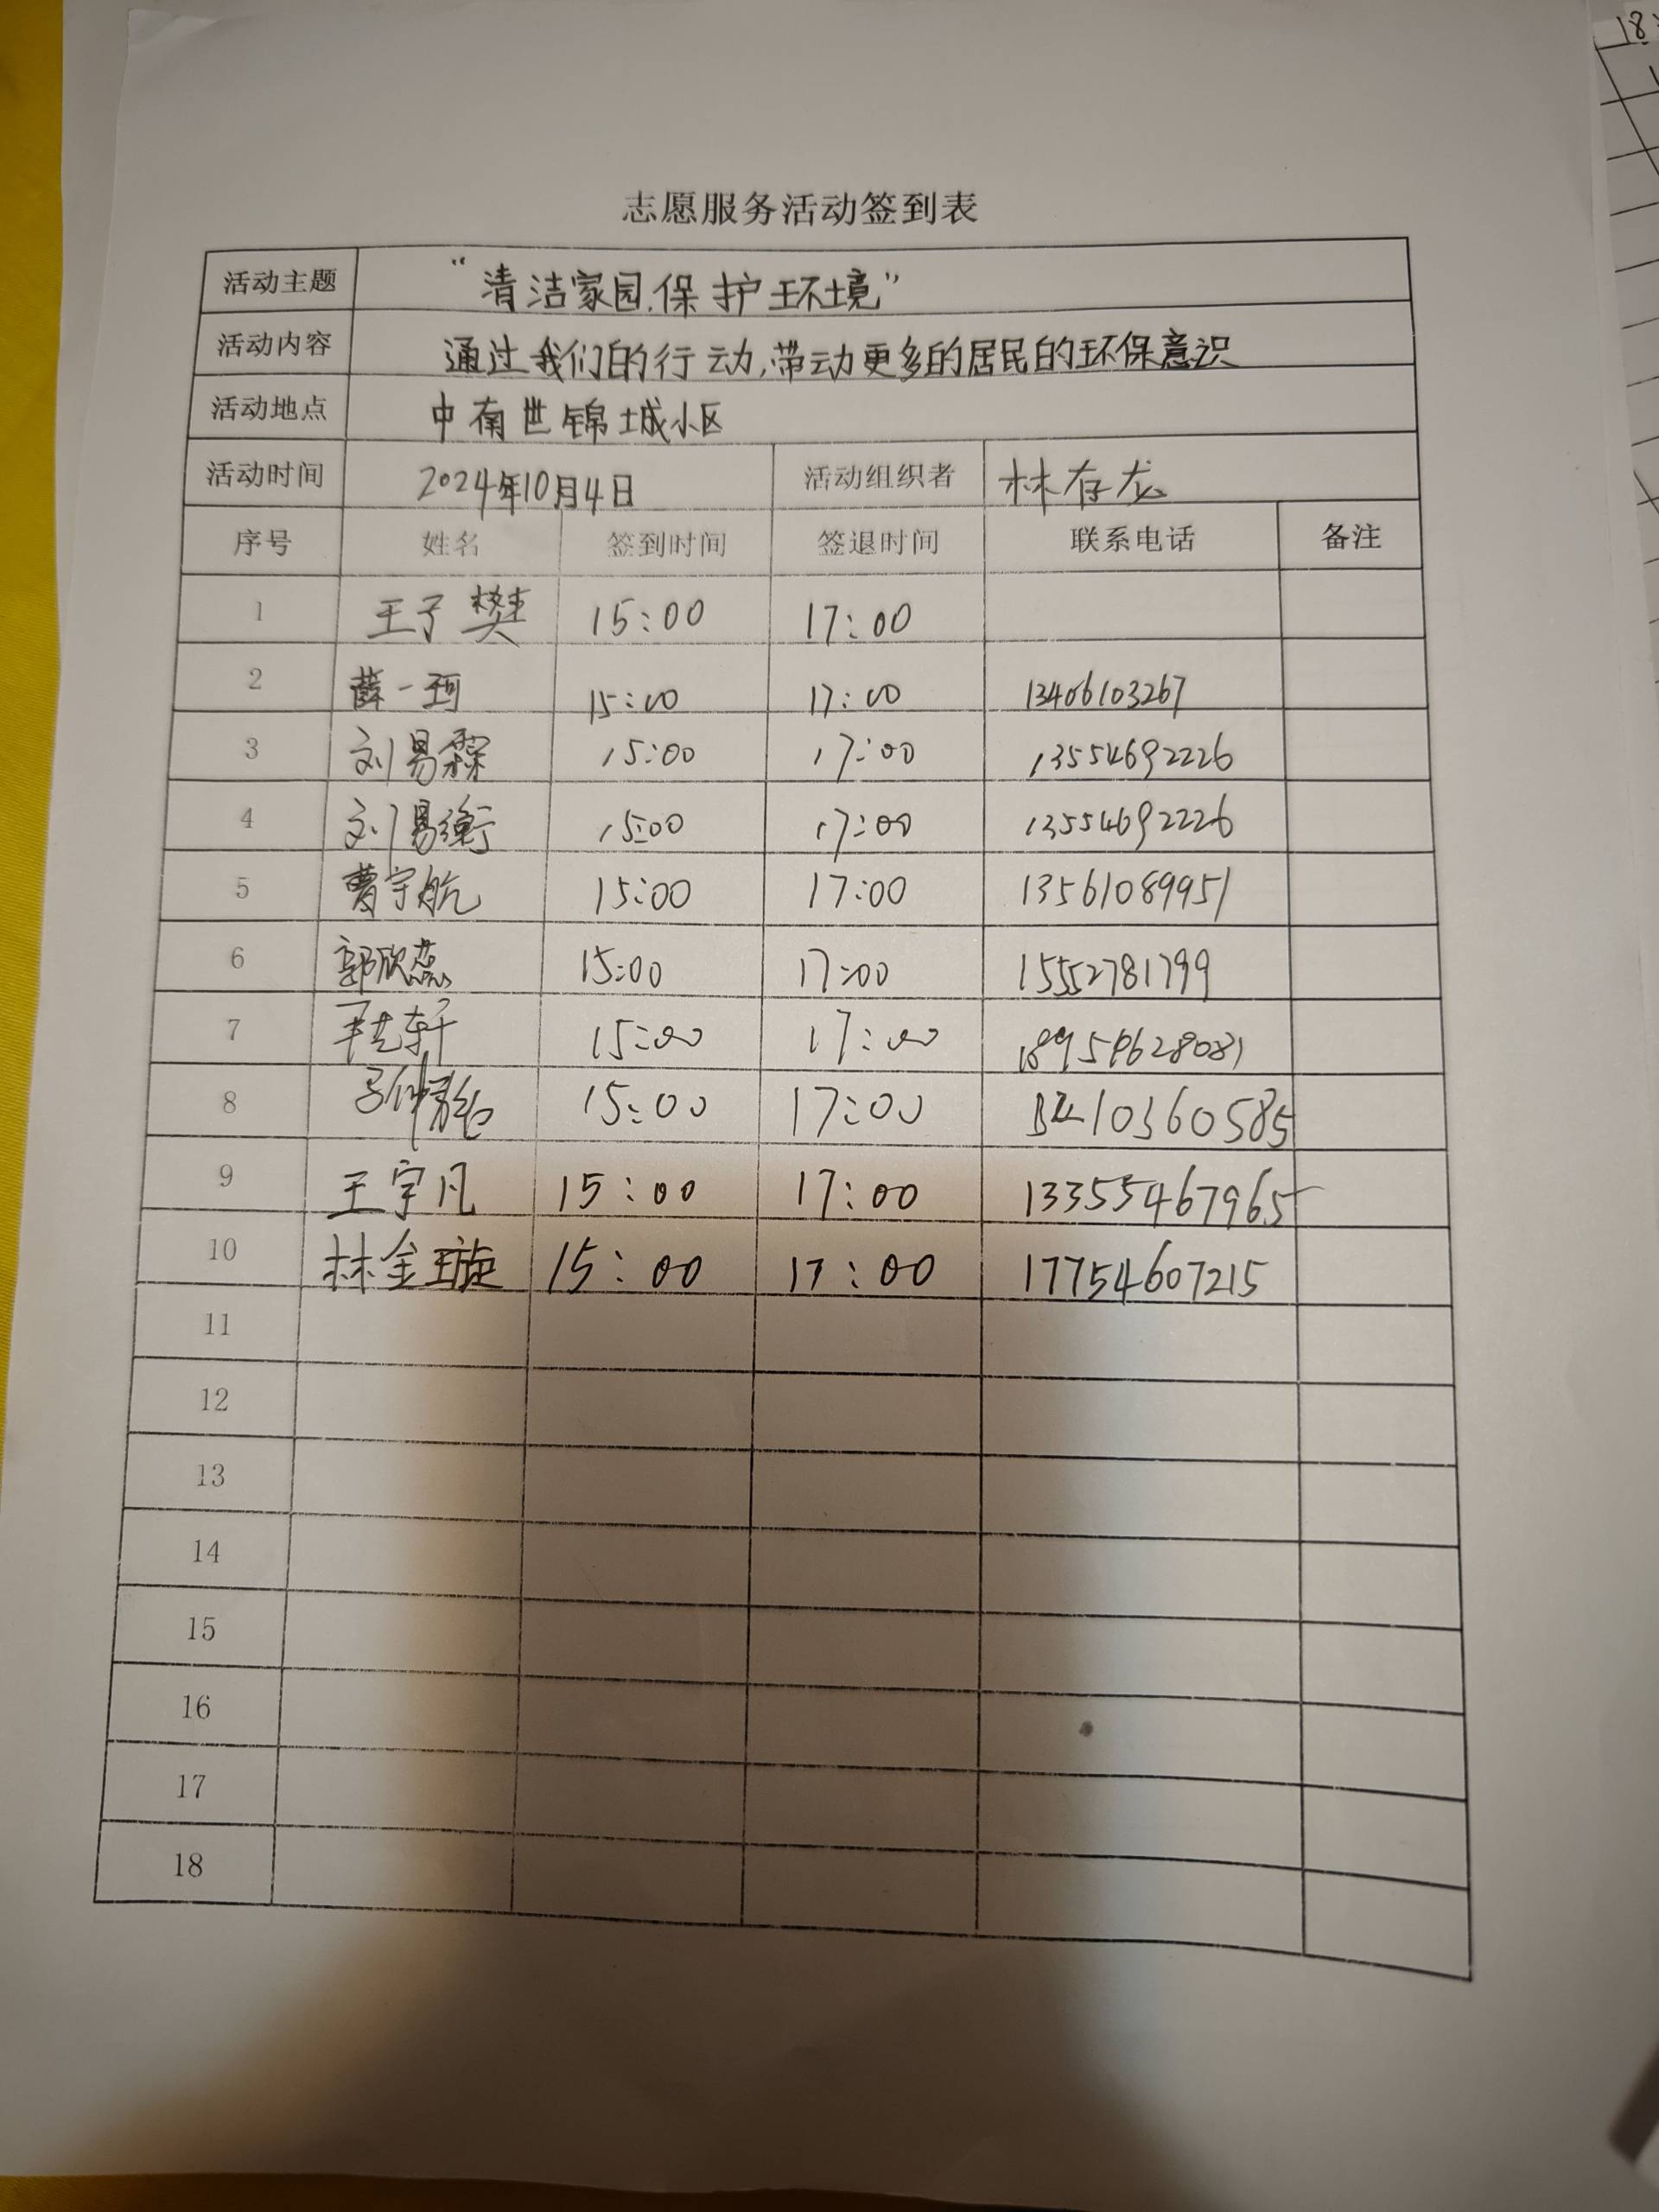 志愿服务活动签到表
活动主题 “清洁家园.保护环境”
活动内容 通过我们的行动,带动更多的居民的环保意识
活动地点 中南世锦城小区
活动时间 2024年10月4日 活动组织者 林存龙
序号 姓名 签到时间 签退时间 联系电话 备注
1 王子樊 15:00 17:00
2 薛一珂 15:00 17:00 13406103267
3 刘易霖 15:00 17:00 13554692226
4 刘易衡 15:00 17:00 13554692226
5 曹宇航 15:00 17:00 13561089951
6 郭欣蕊 15:00 17:00 15552781799
7 15:00 17:00
8 15:00 17:00
9 王宇凡 15:00 17:00 13355467965
10 林金璇 15:00 17:00 17754607215
11
12
13
14
15
16
17
18
18